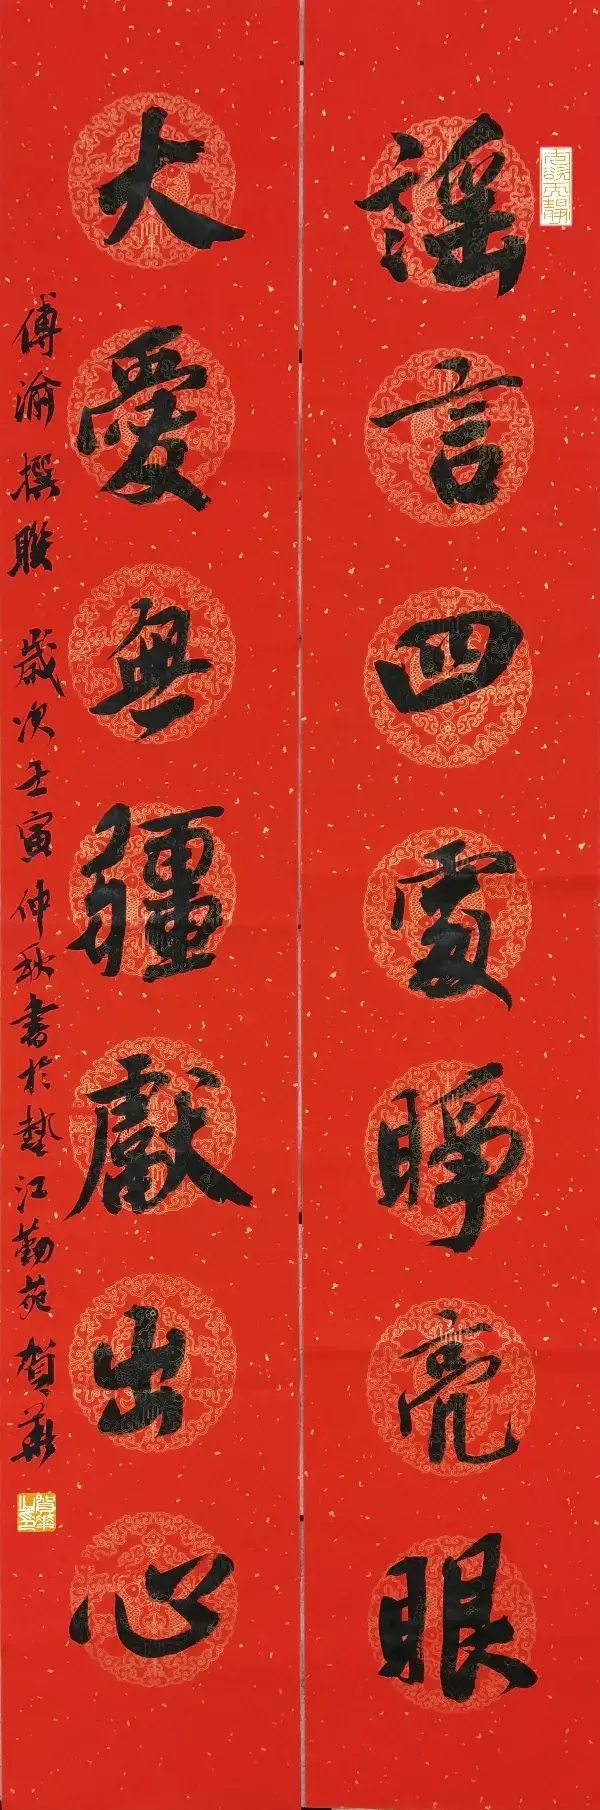 謡言四處睁亮眼
大愛無疆獻出心
傅渝撰联 歲次壬寅仲秋書於墊江勤苑 賀華